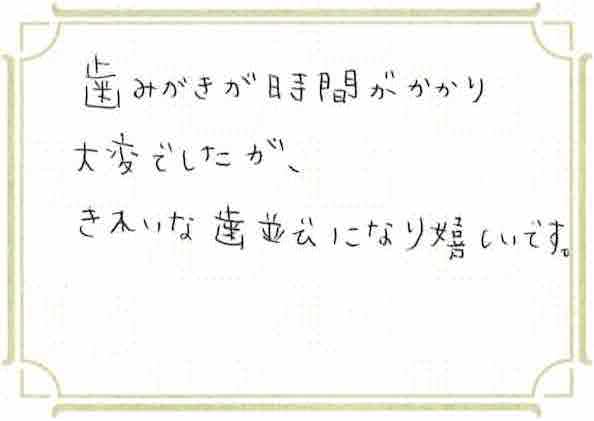 歯みがきが時間がかかり
大変でしたが、
きれいな歯並びになり嬉しいです。